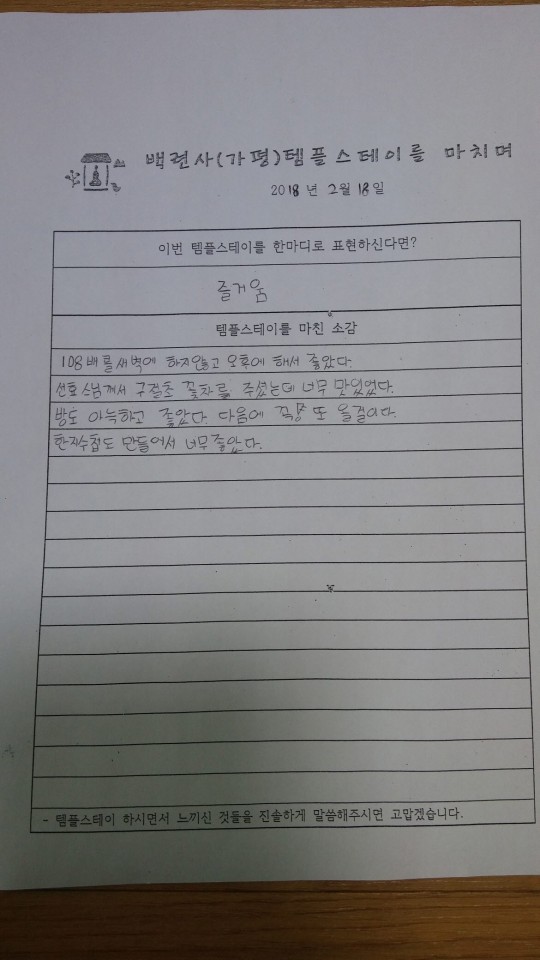 백련사(가평)템플스테이를 마치며
2018년 2월 18일
이번 템플스테이를 한마디로 표현하신다면?
즐거움
템플스테이를 마친 소감
108배를 새벽에 하지않고 오후에 해서 좋았다.
선호스님께서 구절초 꽃차를 주셨는데 너무 맛있었다.
방도 아늑하고 좋았다. 다음에 꼭 또 올꺼이다.
한지수첩도 만들어서 너무좋았다.
- 템플스테이 하시면서 느끼신 것들을 진솔하게 말씀해주시면 고맙겠습니다.